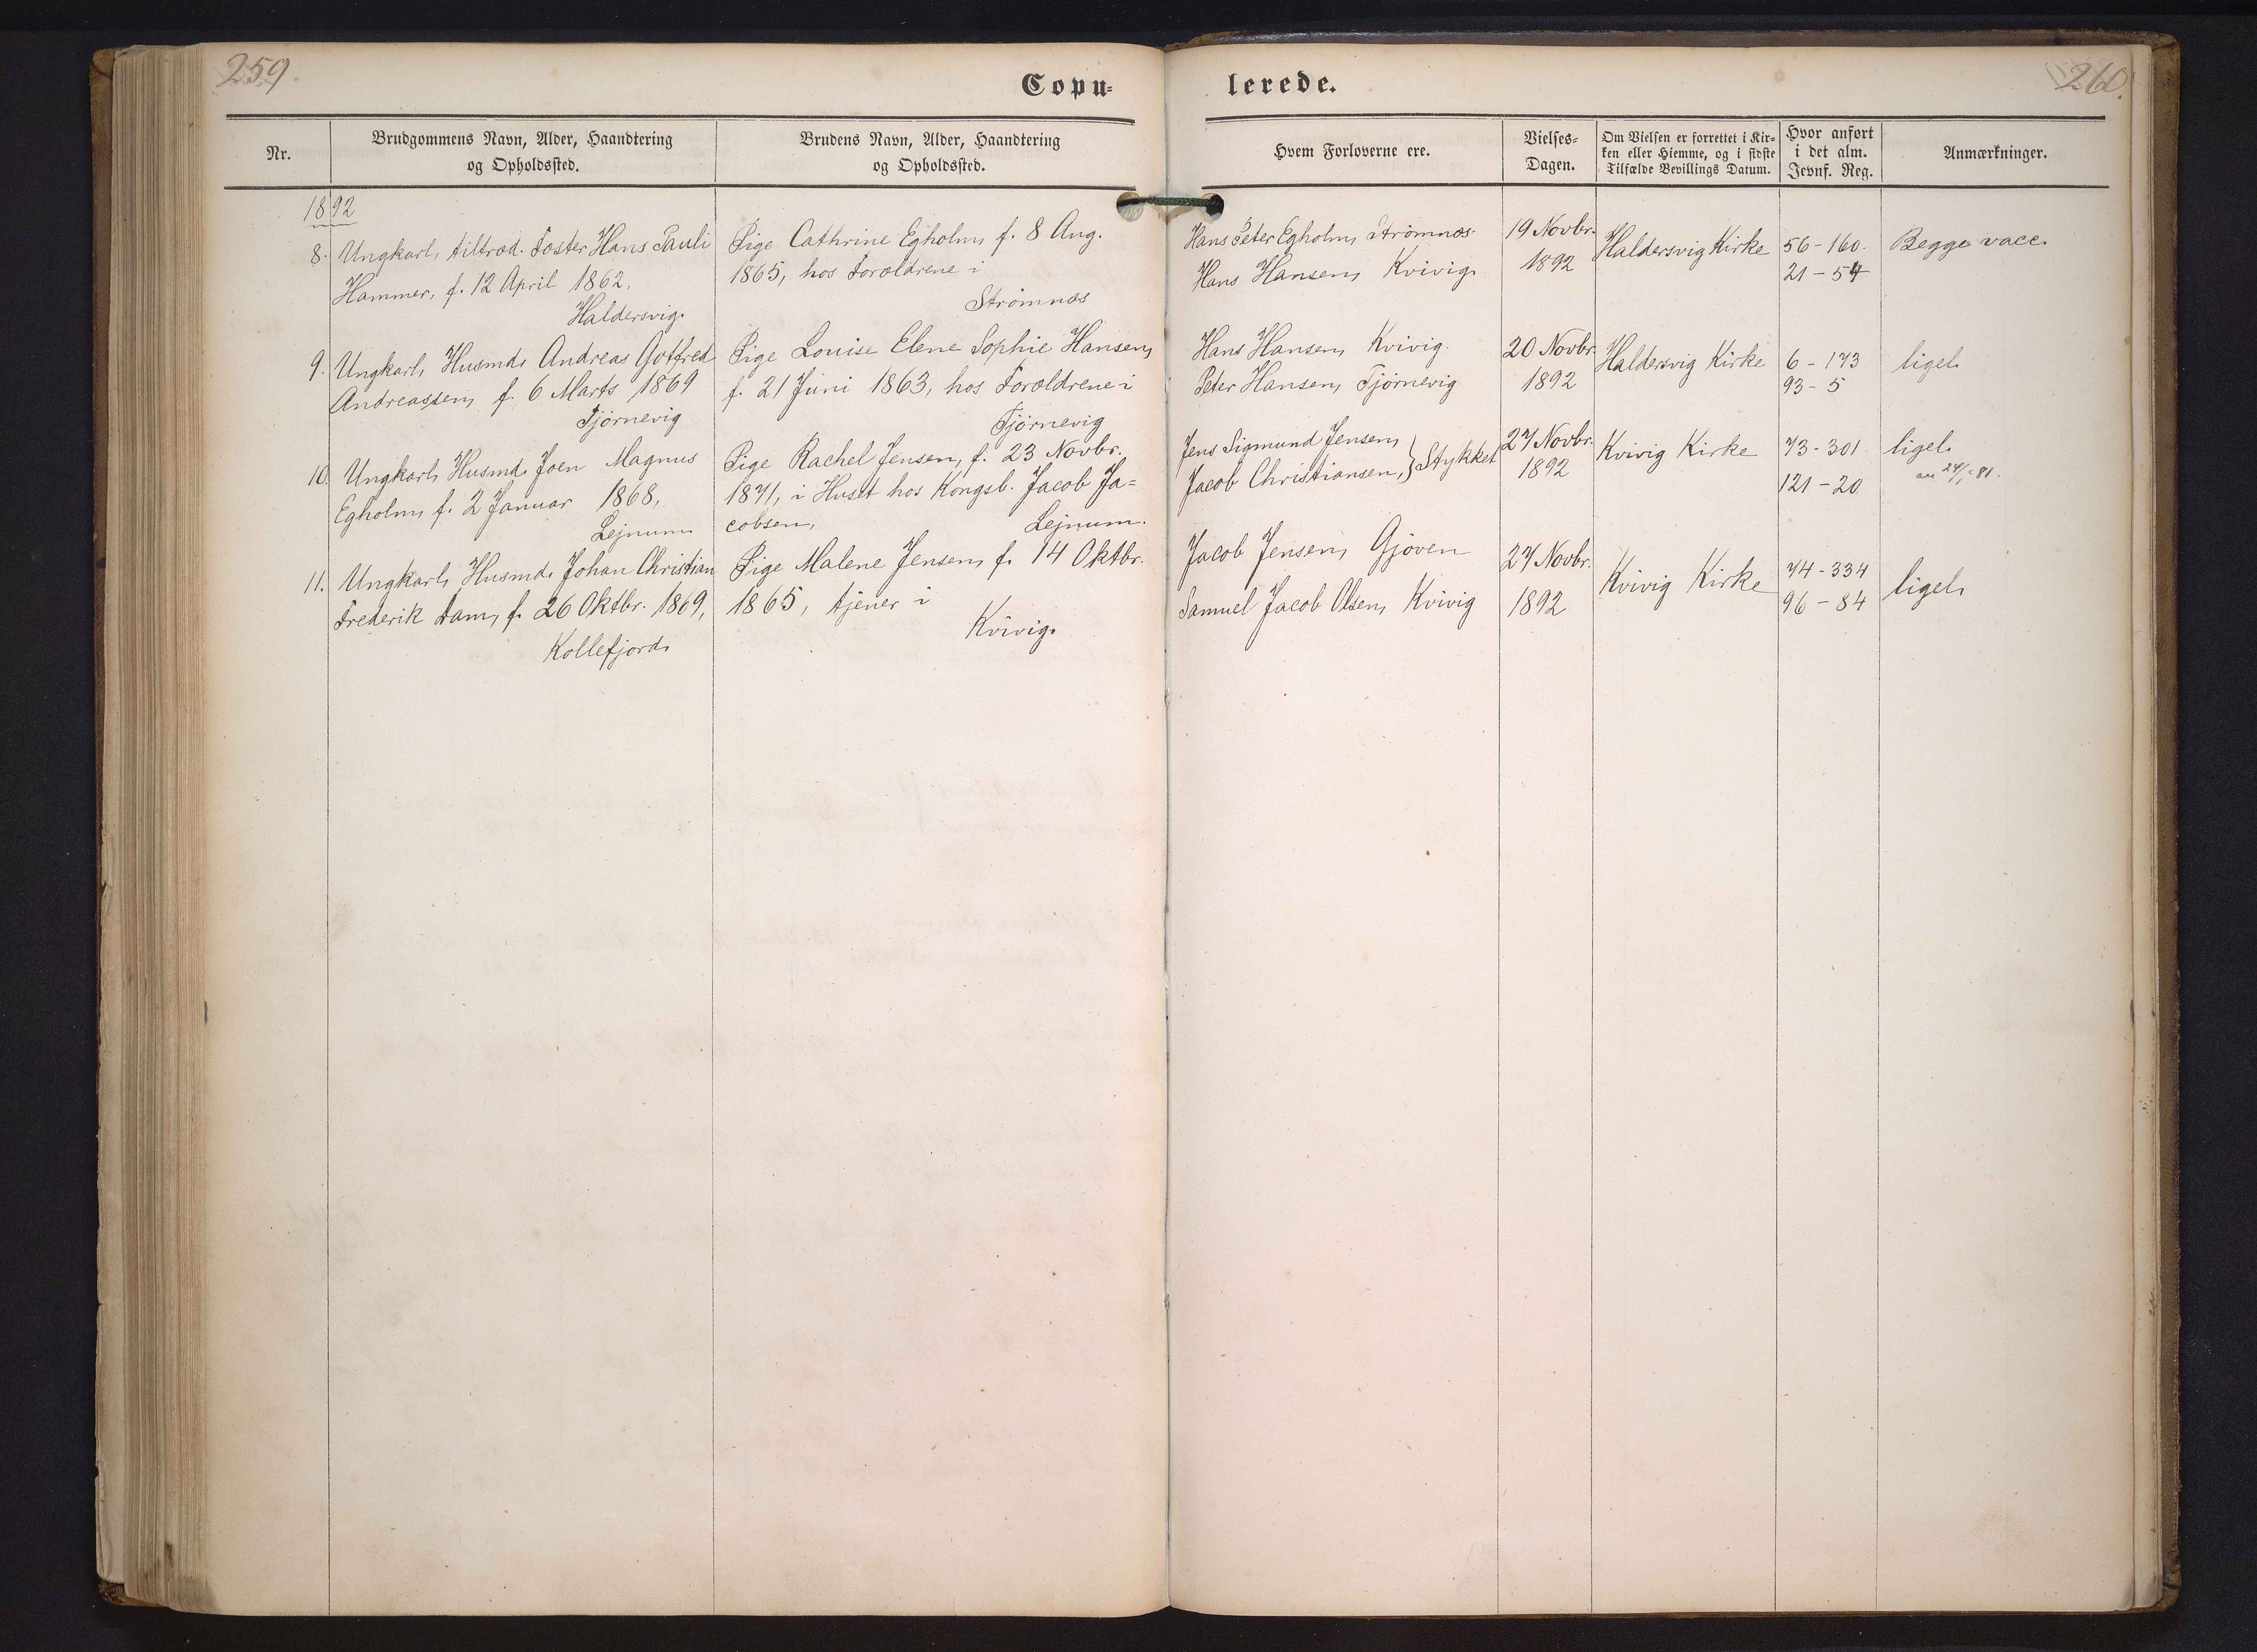 259.
Copu-
lerede.
260.
Nr.
Brudgommens Navn, Alder, Haandtering
og Opholdssted.
Brudens Navn, Alder, Haandtering
og Opholdssted.
Hvem Forloverne ere.
Vielses-
Dagen.
Om Vielsen er forrettet i Kir-
ken eller Hiemme, og i sidste
Tilfælde Bevillings Datum.
Hvor anført
i det alm.
Jevnf. Reg.
Anmærkninger.
1892
8. Ungkarl, tiltræd. Fæster Hans Pauli
Hammer, f. 12 April 1862.
Haldersvig.
Pige Cathrine Egholm, f. 8 Aug.
1865, hos Forældrene i
Strømnæs
Hans Peter Egholm, Strømnæs.
Hans Hansen, Kvivig.
19 Novbr.
1892
Haldersvig Kirke
56-160.
21-54
Begge vacc.
9. Ungkarl, Husmd. Andreas Gotfred
Andreassen, f. 6 Marts 1869
Tjørnevig
Pige Louise Elene Sophie Hansen,
f. 21 Juni 1863, hos Forældrene i
Tjørnevig
Hans Hansen, Kvivig.
Peter Hansen, Tjørnevig
20 Novbr.
1892
Haldersvig Kirke
6-173
93-5
ligel.
10. Ungkarl, Husmd. Joen Magnus
Egholm, f. 2 Januar 1868,
Lejnum
Pige Rachel Jensen, f. 23 Novbr.
1871, i Huset hos Kongsb. Jacob Ja=
cobsen, Lejnum.
Jens Sigmund Jensen,
Jacob Christiansen, } Stykket
27 Novbr.
1892
Kvivig Kirke
73-301
121-20
ligel.
11. Ungkarl, Husmd. Johan Christian
Frederik Dam, f. 26 Oktbr. 1869,
Kollefjord.
Pige Malene Jensen, f. 14 Oktbr.
1865, tjener i
Kvivig.
Jacob Jensen, Gjøven
Samuel Jacob Olsen, Kvivig
27 Novbr.
1892
Kvivig Kirke
74-334
96-84
ligel.